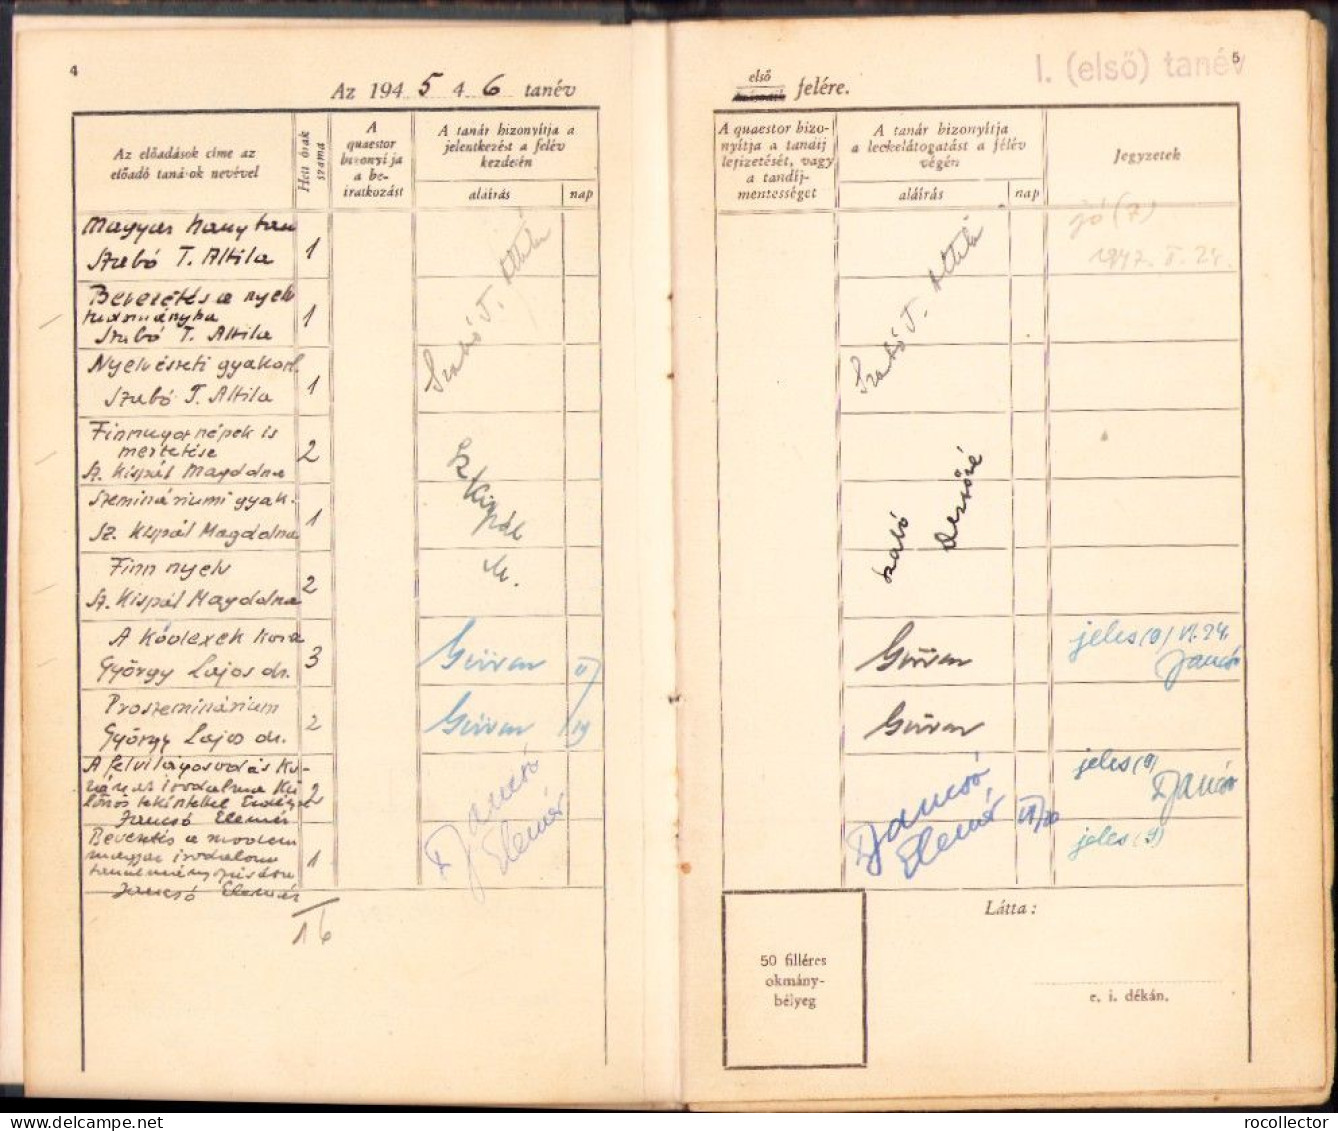 4
Az 1945 46 tanév
Az előadások címe az
előadó tanárok nevével
Heti órák
száma
A
quaestor
bizonyítja
a be-
iratkozást
A tanár bizonyítja a
jelentkezést a félév
kezdetén
aláírás
nap
Magyar hangtan
Szabó T. Attila
1
Bevezetés a nyelv
tudományba
Szabó T. Attila
1
Nyelvészeti gyakorl.
Szabó T. Attila
1
Szabó T. Attila
Finnugor népek is
mertetése
Sz. Kispál Magdolna
2
Szemináriumi gyak.
Sz. Kispál Magdolna
1
Finn nyelv
Sz. Kispál Magdolna
2
Sz Kispál
M.
A kódexek kora
György Lajos dr.
3
Proszeminárium
György Lajos dr.
2
A felvilágosodás ko-
irodalma kü
lönös tekintettel
Jancsó Elemér
2
Bevezetés a modern
magyar irodalom
Jancsó Elemér
1
Jancsó
Elemér
16
5
I. (első) tanév
első
második felére.
A quaestor bizo-
nyítja a tandíj
lefizetését, vagy
a tandíj-
mentességet
A tanár bizonyítja
a leckelátogatást a félév
végén
aláírás
nap
Jegyzetek
jó (7)
Szabó T. Attila
Szabó
Dezsőné
jeles (9) VI. 24.
Jancsó
jeles (9)
Jancsó
Jancsó
Elemér
jeles (9)
50 filléres
okmány-
bélyeg
Látta:
e. i. dékán.
rocollector